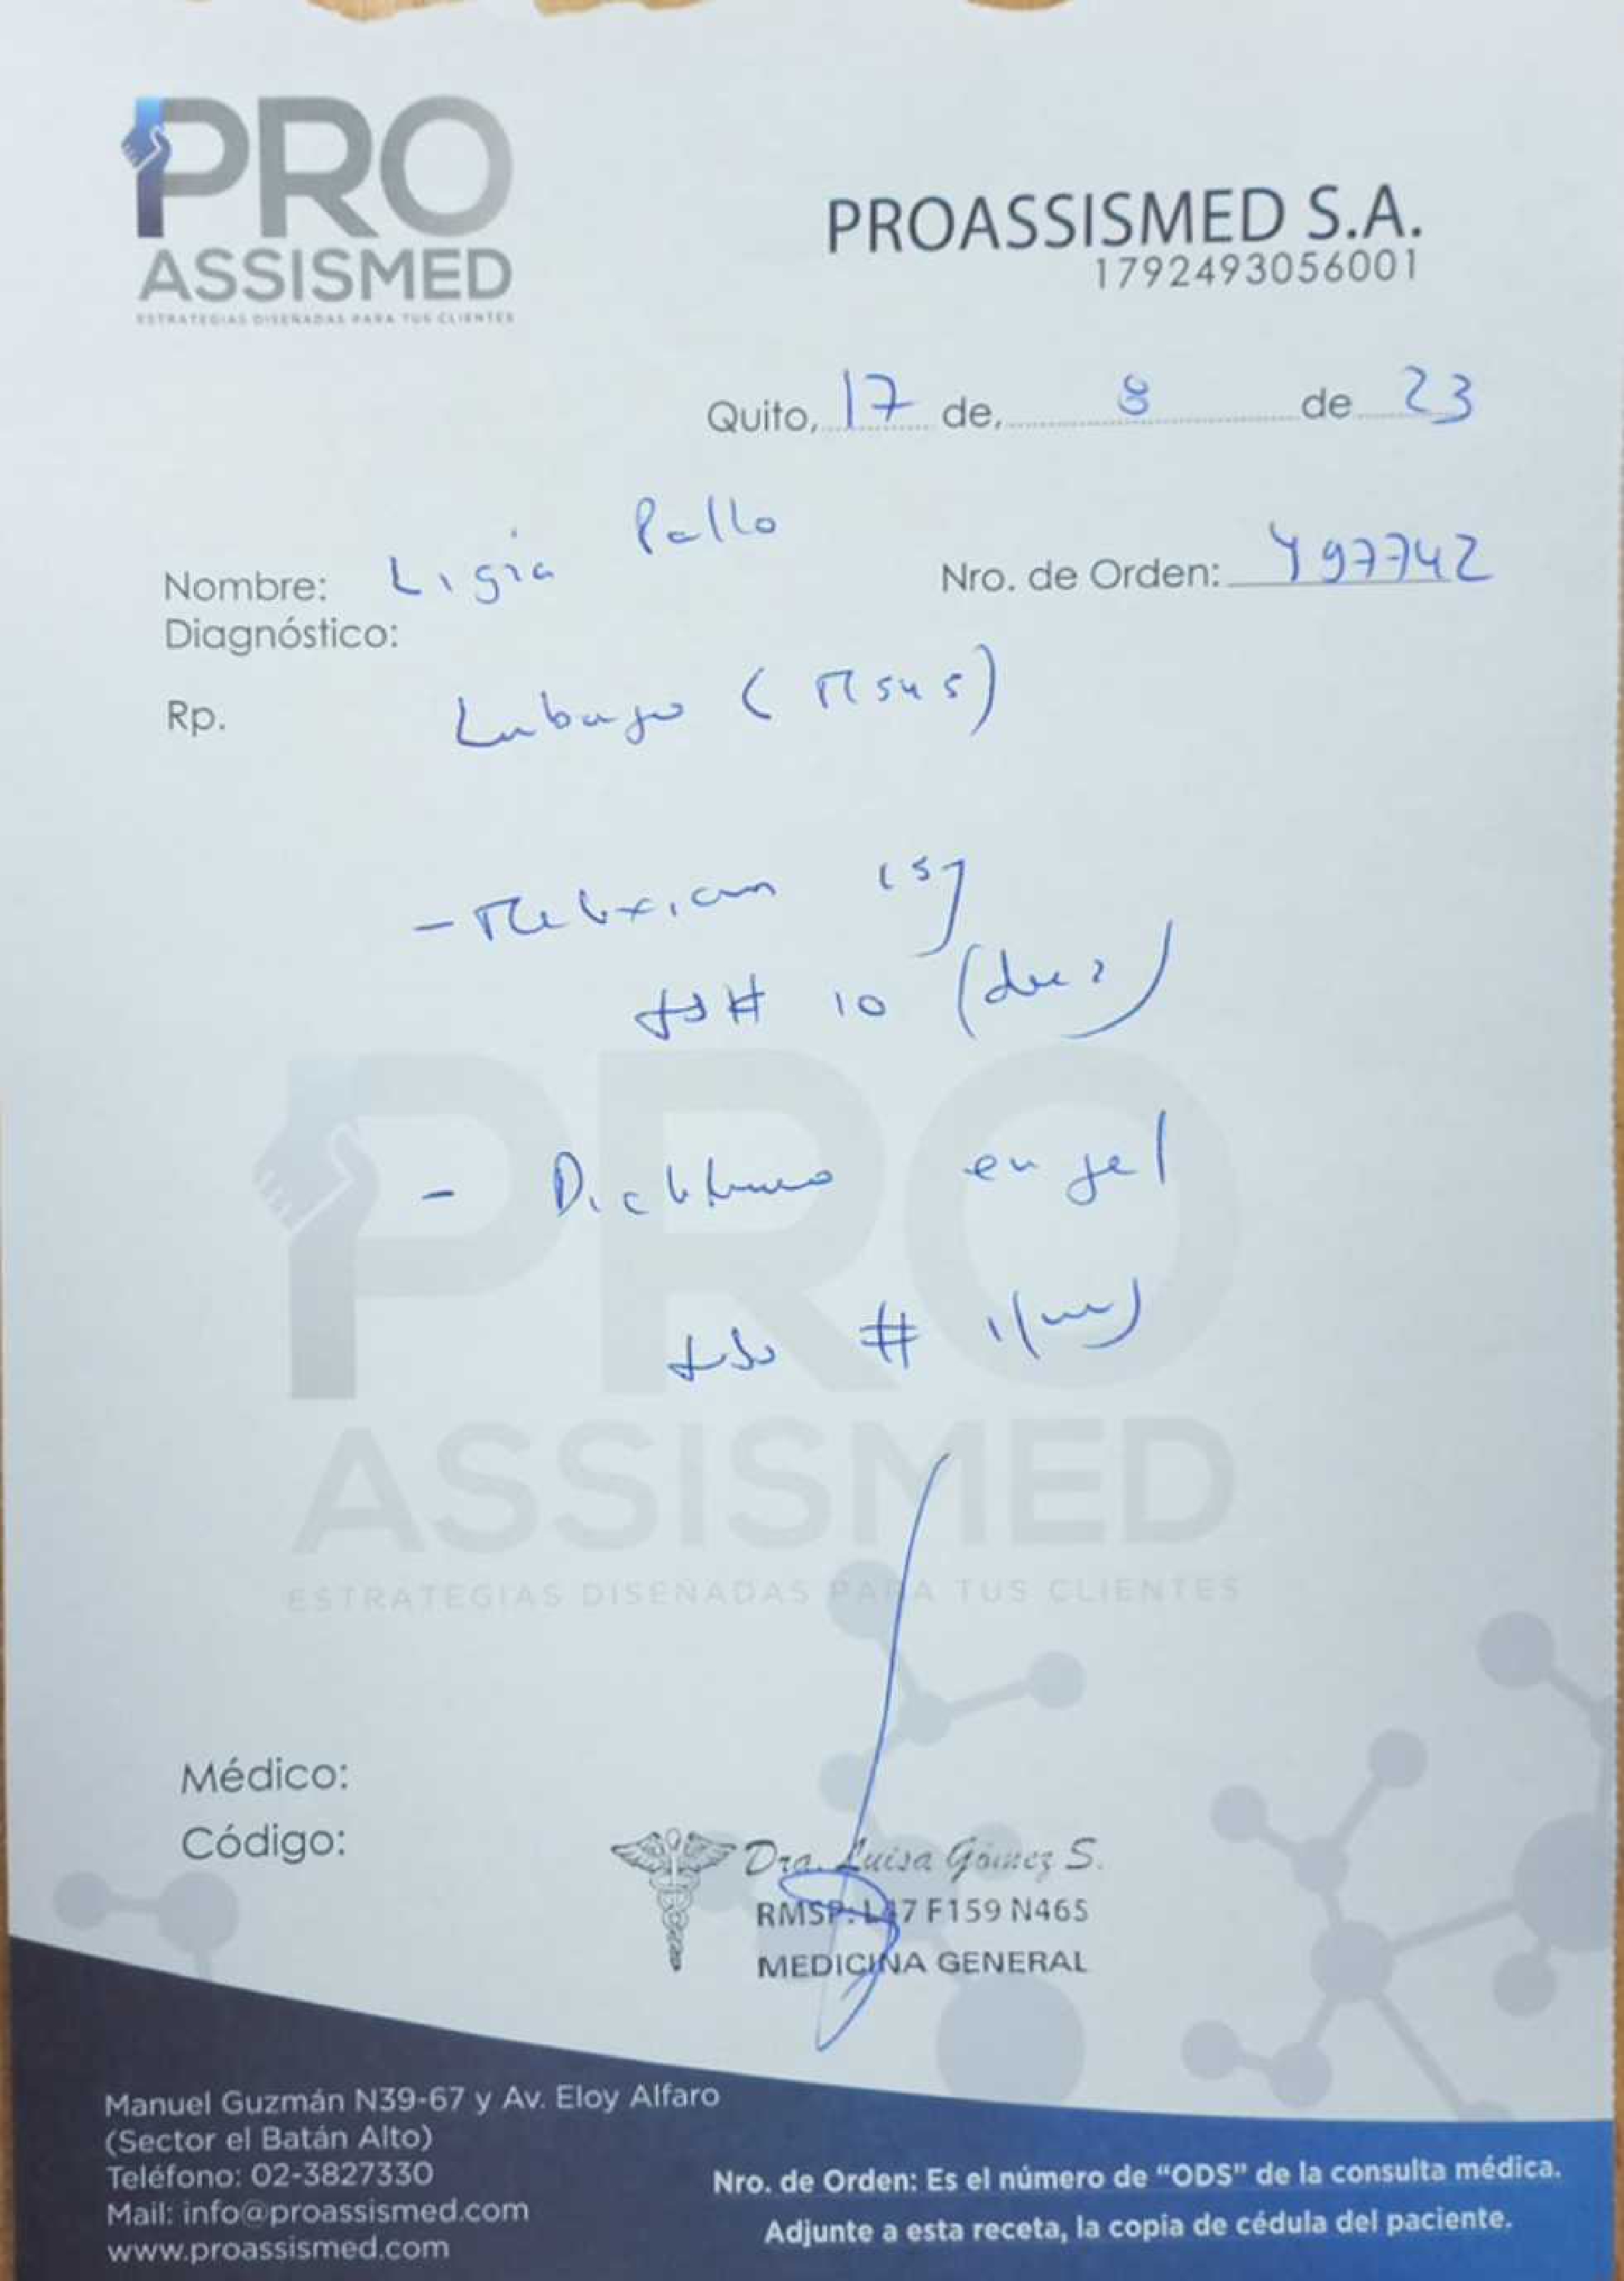 PRO
ASSISMED
ESTRATEGIAS DISEÑADAS PARA TUS CLIENTES
PROASSISMED S.A.
1792493056001
Quito, 17 de, 8 de 23
Nombre: Ligia Pallo
Nro. de Orden: 497742
Diagnóstico:
Rp. Lubago (M545)
- 15
# 10
- en gel
# 1
PRO
ASSISMED
ESTRATEGIAS DISEÑADAS PARA TUS CLIENTES
Médico:
Código:
Dra. Luisa Gómez S.
RMSP: F159 N465
MEDICINA GENERAL
Manuel Guzmán N39-67 y Av. Eloy Alfaro
(Sector el Batán Alto)
Teléfono: 02-3827330
Mail: info@proassismed.com
www.proassismed.com
Nro. de Orden: Es el número de “ODS” de la consulta médica.
Adjunte a esta receta, la copia de cédula del paciente.